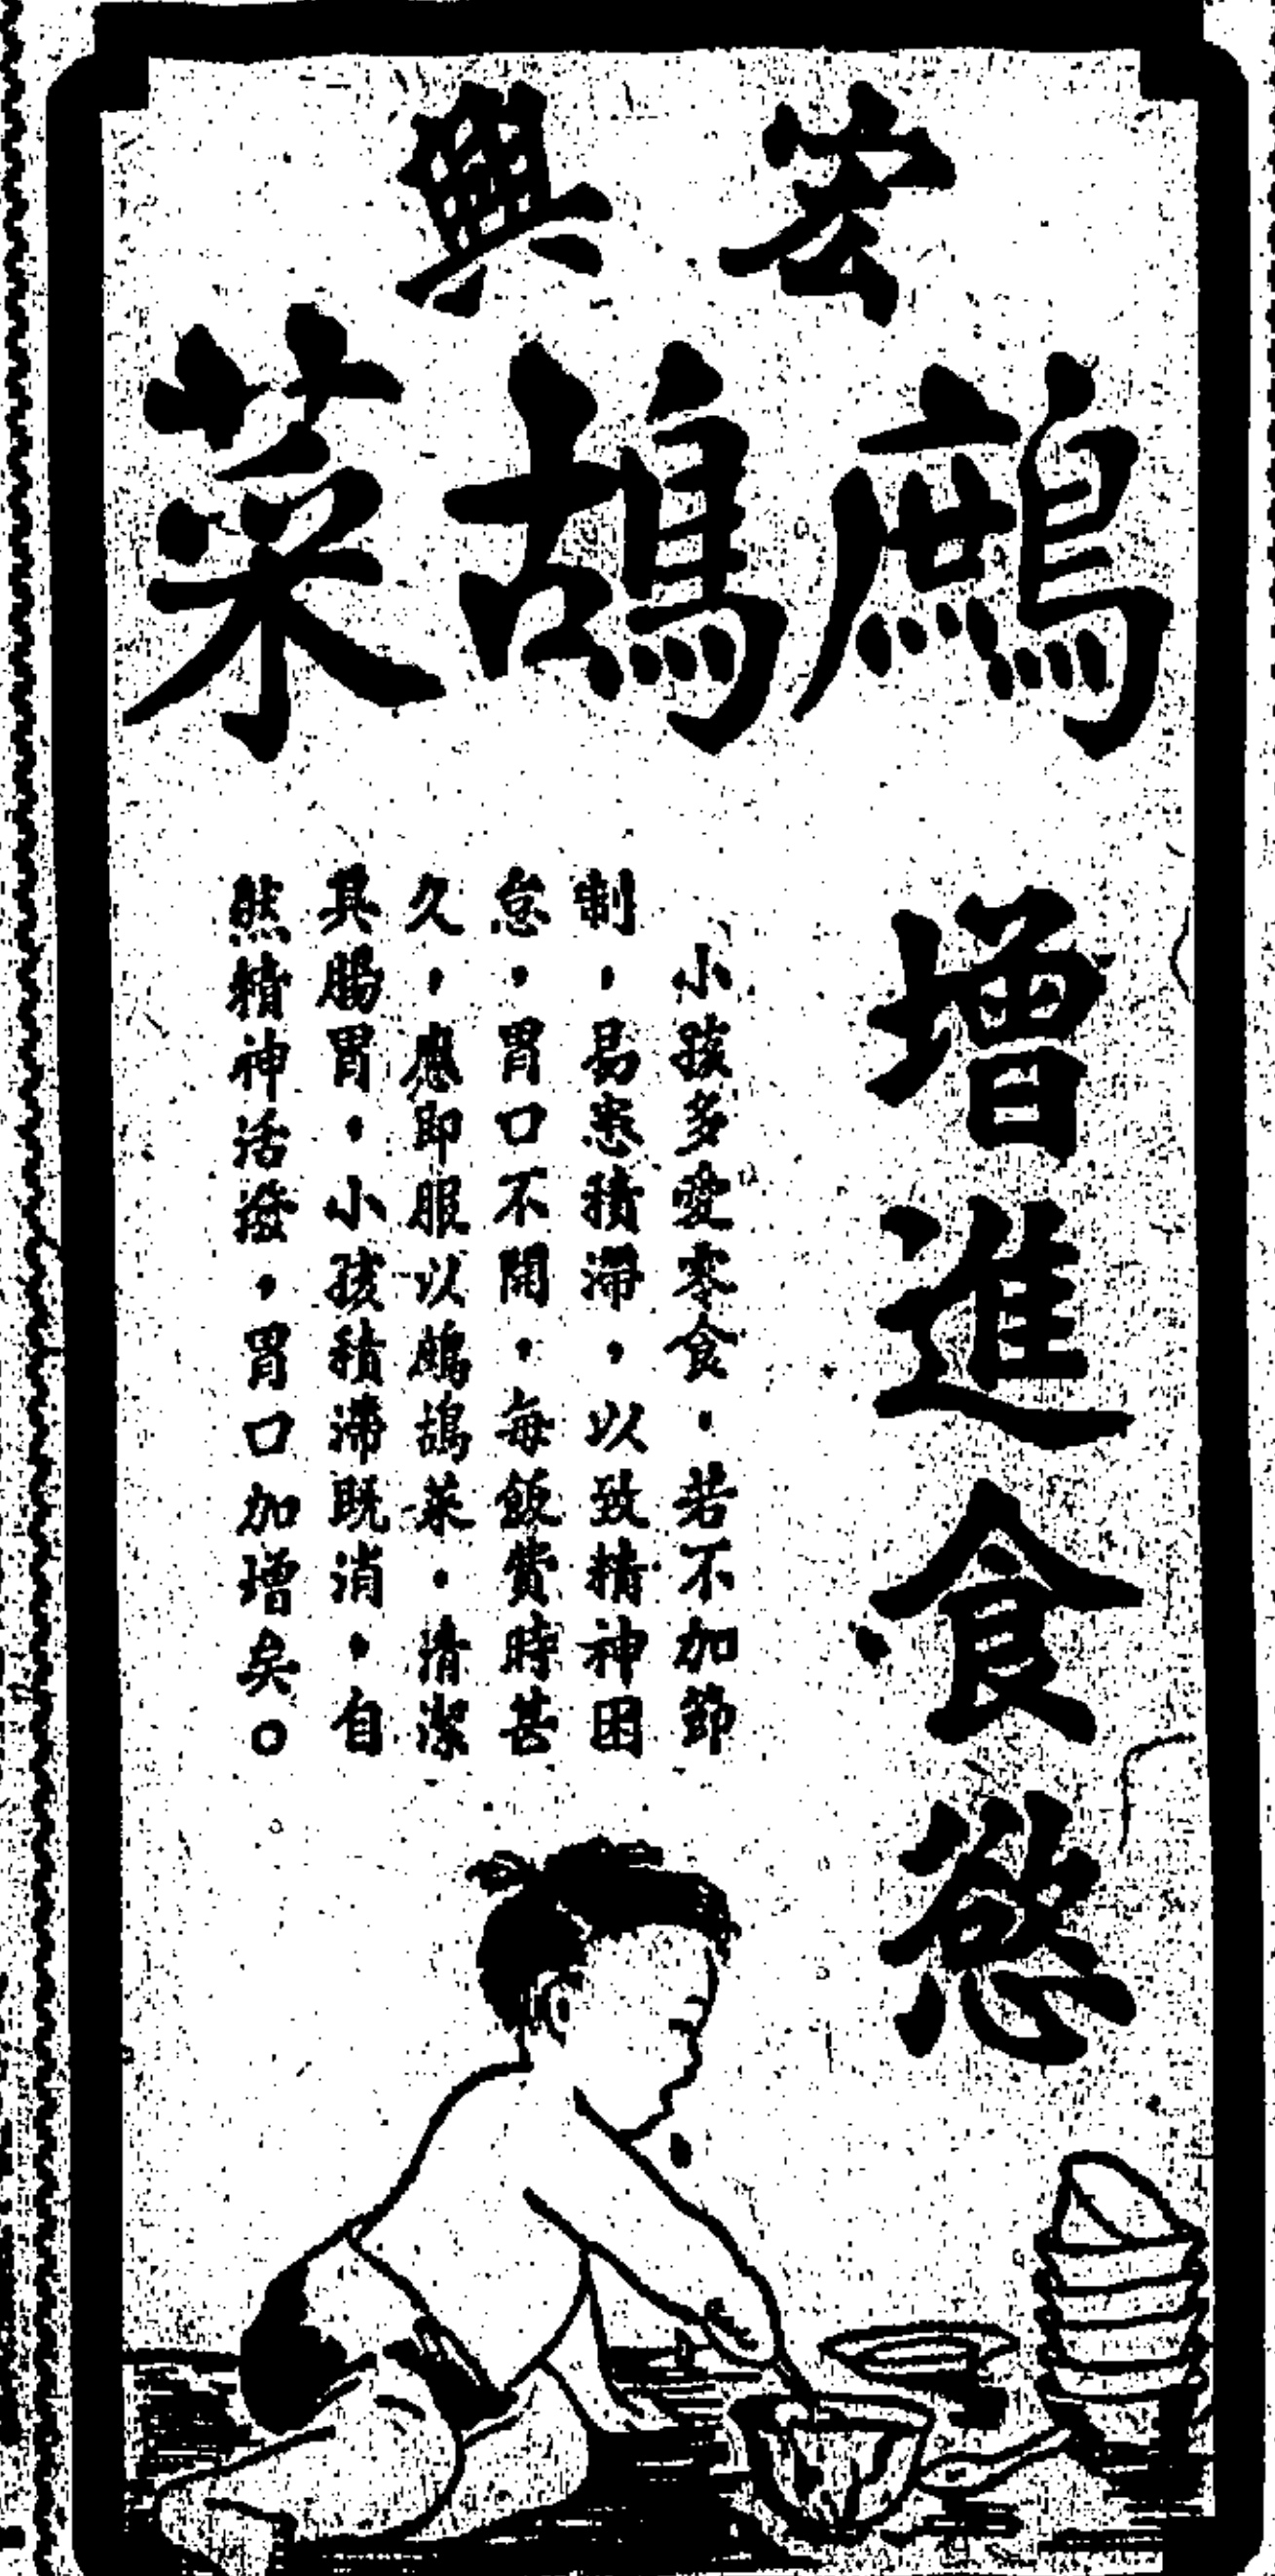 宏興
鷓鴣菜
增進食慾
小孩多愛零食，若不加節
制，易患積滯，以致精神困
怠，胃口不開，每飯費時甚
久，應即服以鷓鴣菜，清潔
其腸胃，小孩積滯既消，自
然精神活潑，胃口加增矣。